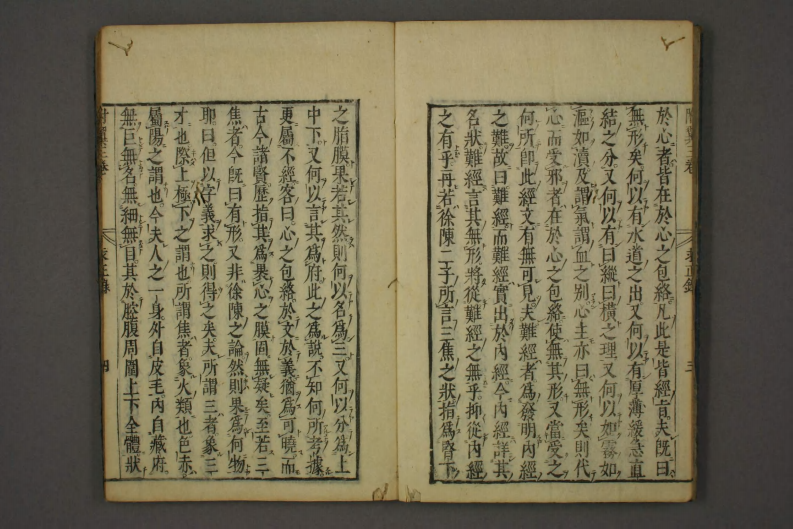 於心者皆在於心之包絡凡此是皆經言夫既曰
無形矣何以有水道之出又何以有厚薄緩急直
結之分又何以有曰縱曰橫之理又何以如霧如
漚如瀆及謂氣謂血之別心主亦曰無形矣則代
心而受邪者在於心之包絡使無其形又當受之
何所即此經文有無可見夫難經者爲發明內經
之難故曰難經而難經實出於內經今內經詳其
名狀難經言其無形將從難經之無乎抑從內經
之有乎再若徐陳二子所言三焦之狀指爲腎下
之脂膜果若其然則何以名爲三又何以分爲上
中下又何以言其爲府此之爲說不知何所考據
更屬不經客曰心之包絡於文於義猶爲可曉而
古今諸賢歷指其爲裹心之膜固無疑矣至若三
焦者今既曰有形又非徐陳之論然則果爲何物
耶曰但以字義求之則得之矣夫所謂三者象三
才也際上極下之謂也所謂焦者象火類也色赤
屬陽之謂也今夫人之一身外自皮毛內自藏府
無巨無名無細無目其於腔腹周圍上下全體狀
附翼三卷
求正錄
三
四